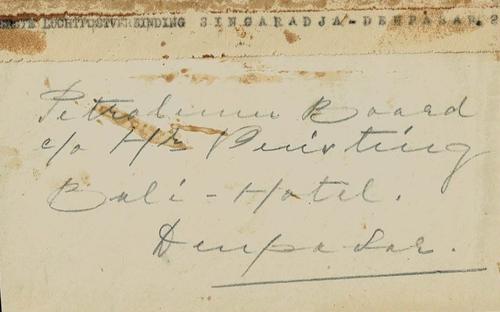 EERSTE LUCHTPOSTVERBINDING SINGARADJA-DENPASAR. 2
Petroleum Board
c/o Hr
Bali-Hotel.
Denpasar.